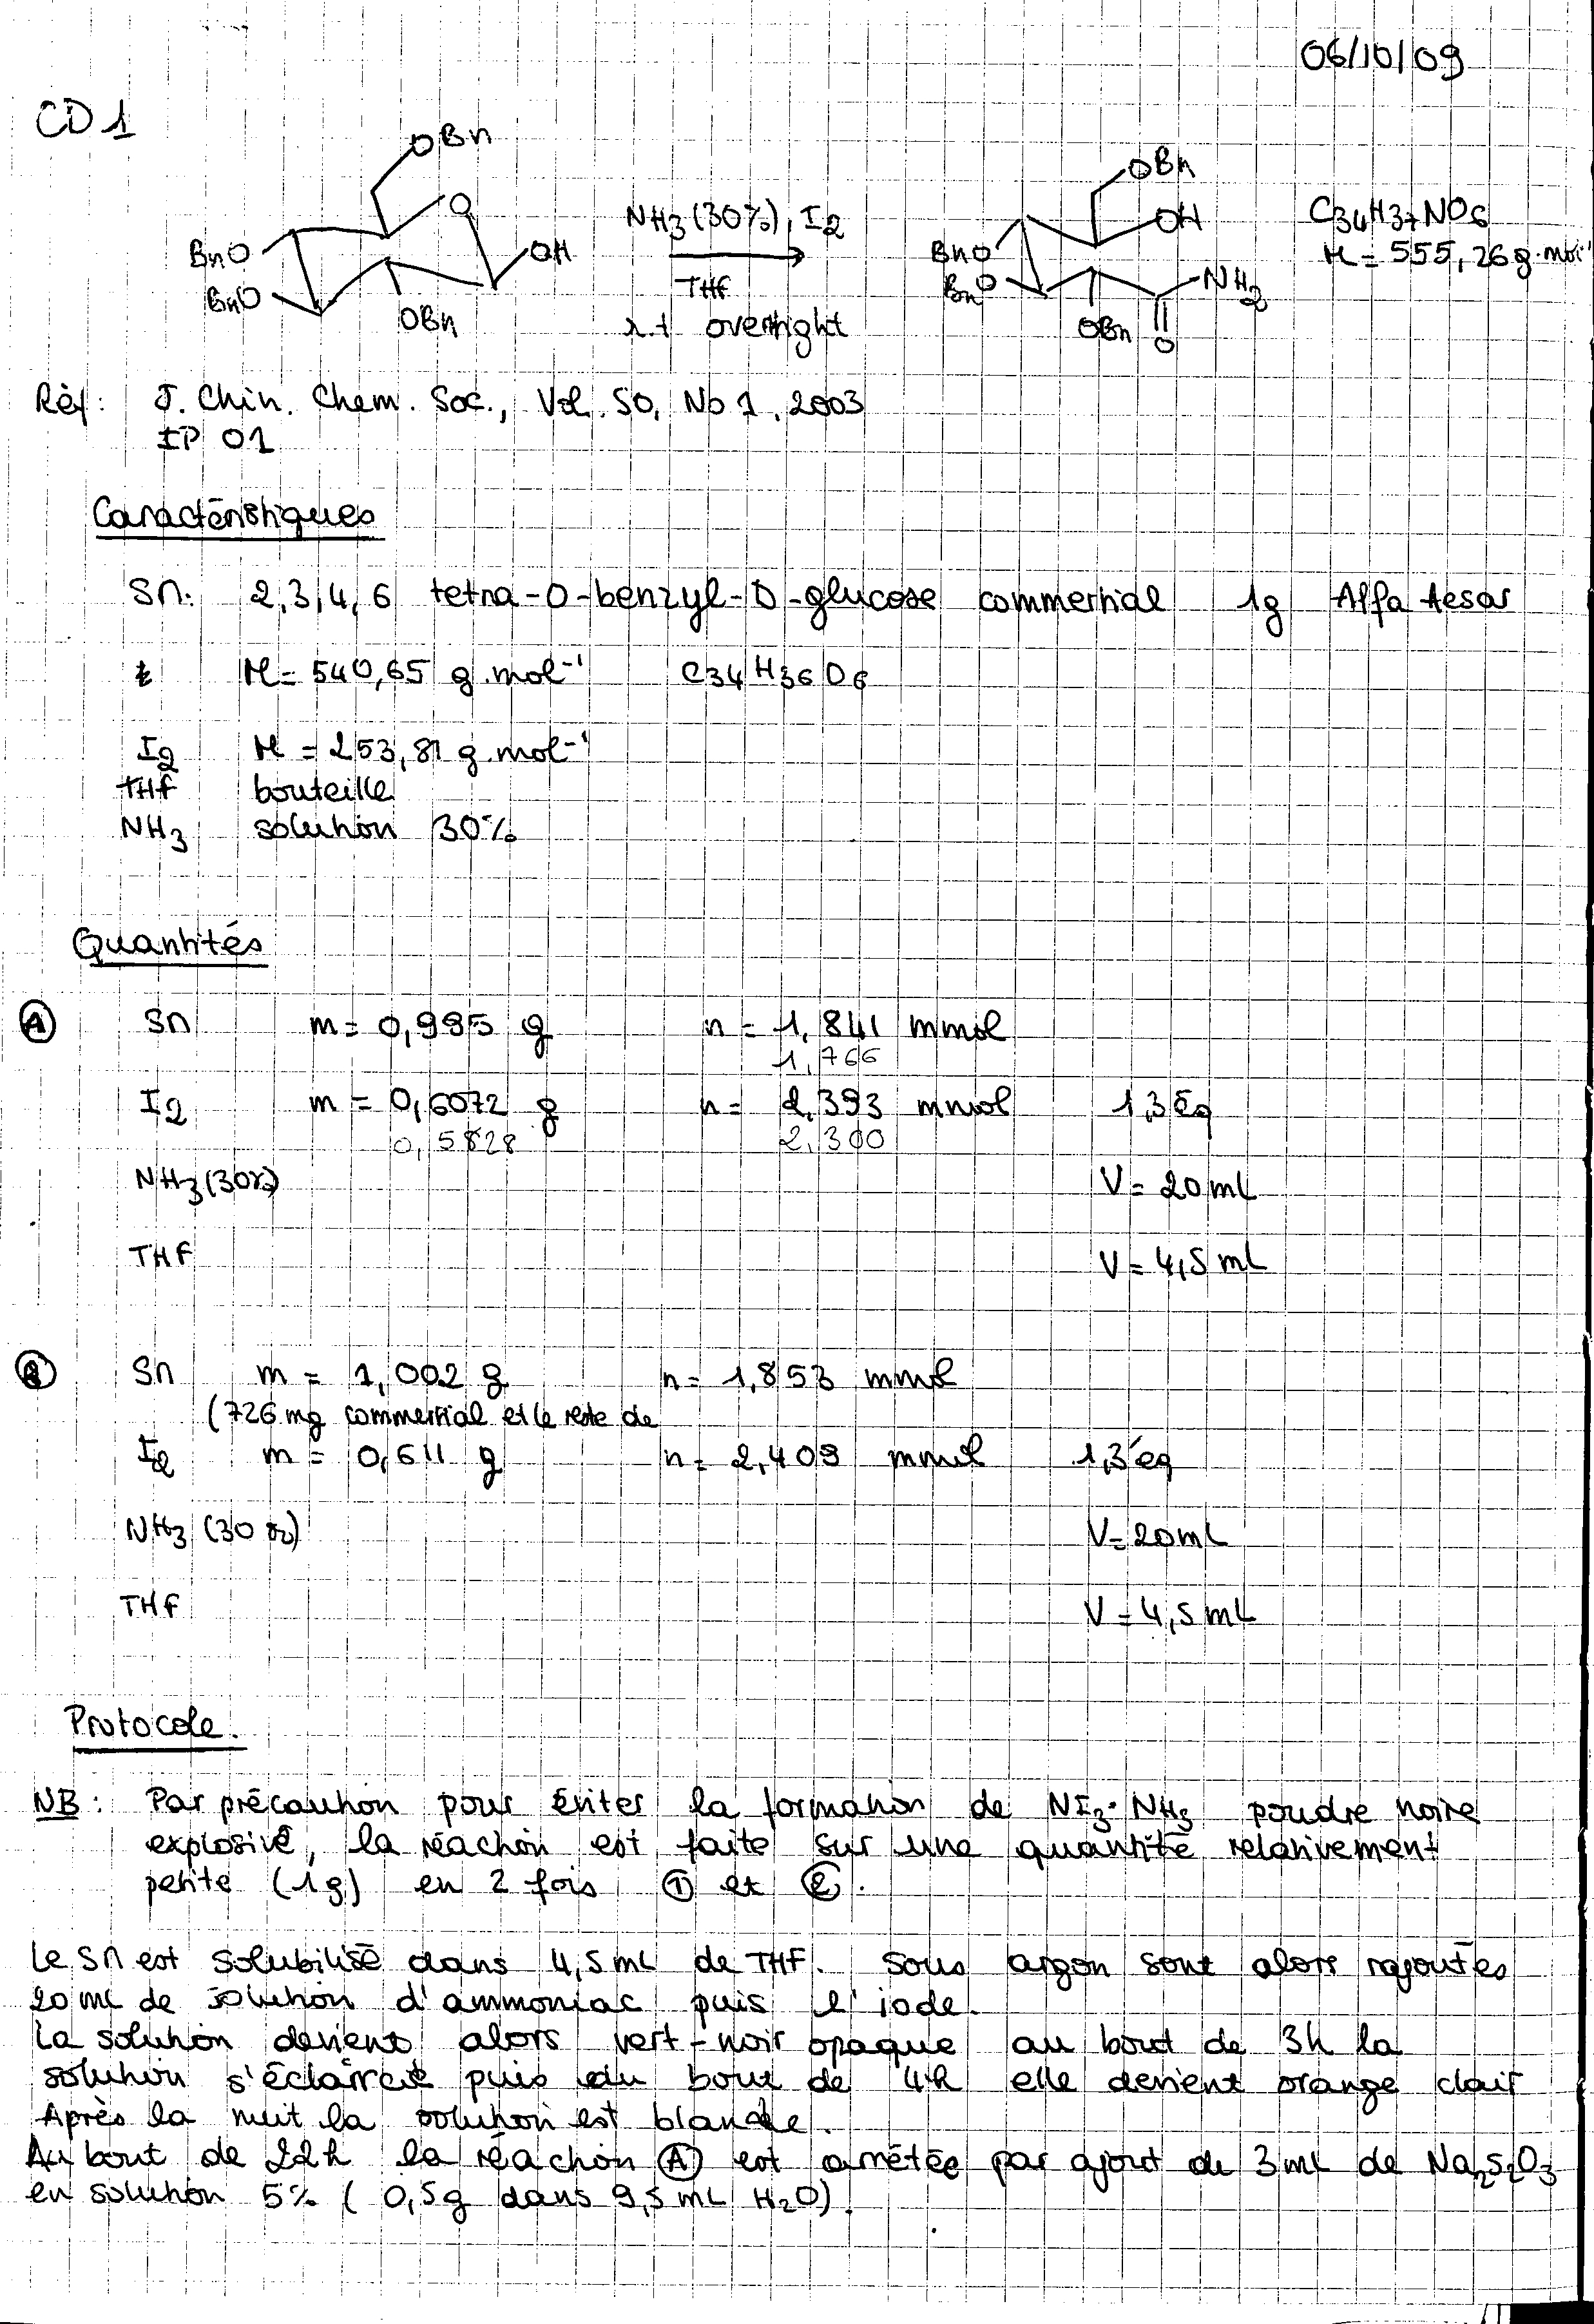 06/10/09
CD1
OBn
O
BnO
BnO
OBn
OH
NH3 (30%), I2
THF
r.t overnight
OBn
OH
BnO
BnO
OBn
NH2
O
C34H37NO6
M = 555,26 g.mol-1
Réf: J. Chin. Chem. Soc., Vol. 50, No 1, 2003
IP 01
Caractéristiques
SM: 2,3,4,6 tetra-O-benzyl-D-glucose commercial 1g Alfa Aesar
M = 540,65 g.mol-1 C34H36O6
I2 M = 253,81 g.mol-1
THF bouteille
NH3 solution 30%
Quantités
A SM m = 0,995 g n = 1,841 mmol
1,766
I2 m = 0,6072 g n = 2,393 mmol 1,3 éq
0,5828 2,300
NH3 (30%) V = 20 mL
THF V = 4,5 mL
B SM m = 1,002 g n = 1,853 mmol
(726 mg commercial et le reste de
I2 m = 0,611 g n = 2,409 mmol 1,3 éq
NH3 (30%) V = 20 mL
THF V = 4,5 mL
Protocole.
NB: Par précaution pour éviter la formation de NI3·NH3 poudre noire
explosive, la réaction est faite sur une quantité relativement
petite (1g) en 2 fois 1 et 2.
Le SM est solubilisé dans 4,5 mL de THF. Sous argon sont alors rajoutés
20 mL de solution d'ammoniac puis l'iode.
La solution devient alors vert-noir opaque au bout de 3h la
solution s'éclaircit puis au bout de 4h elle devient orange clair
Après la nuit la solution est blanche.
Au bout de 22h la réaction A est arrêtée par ajout de 3 mL de Na2S2O3
en solution 5% (0,5g dans 9,5 mL H2O).